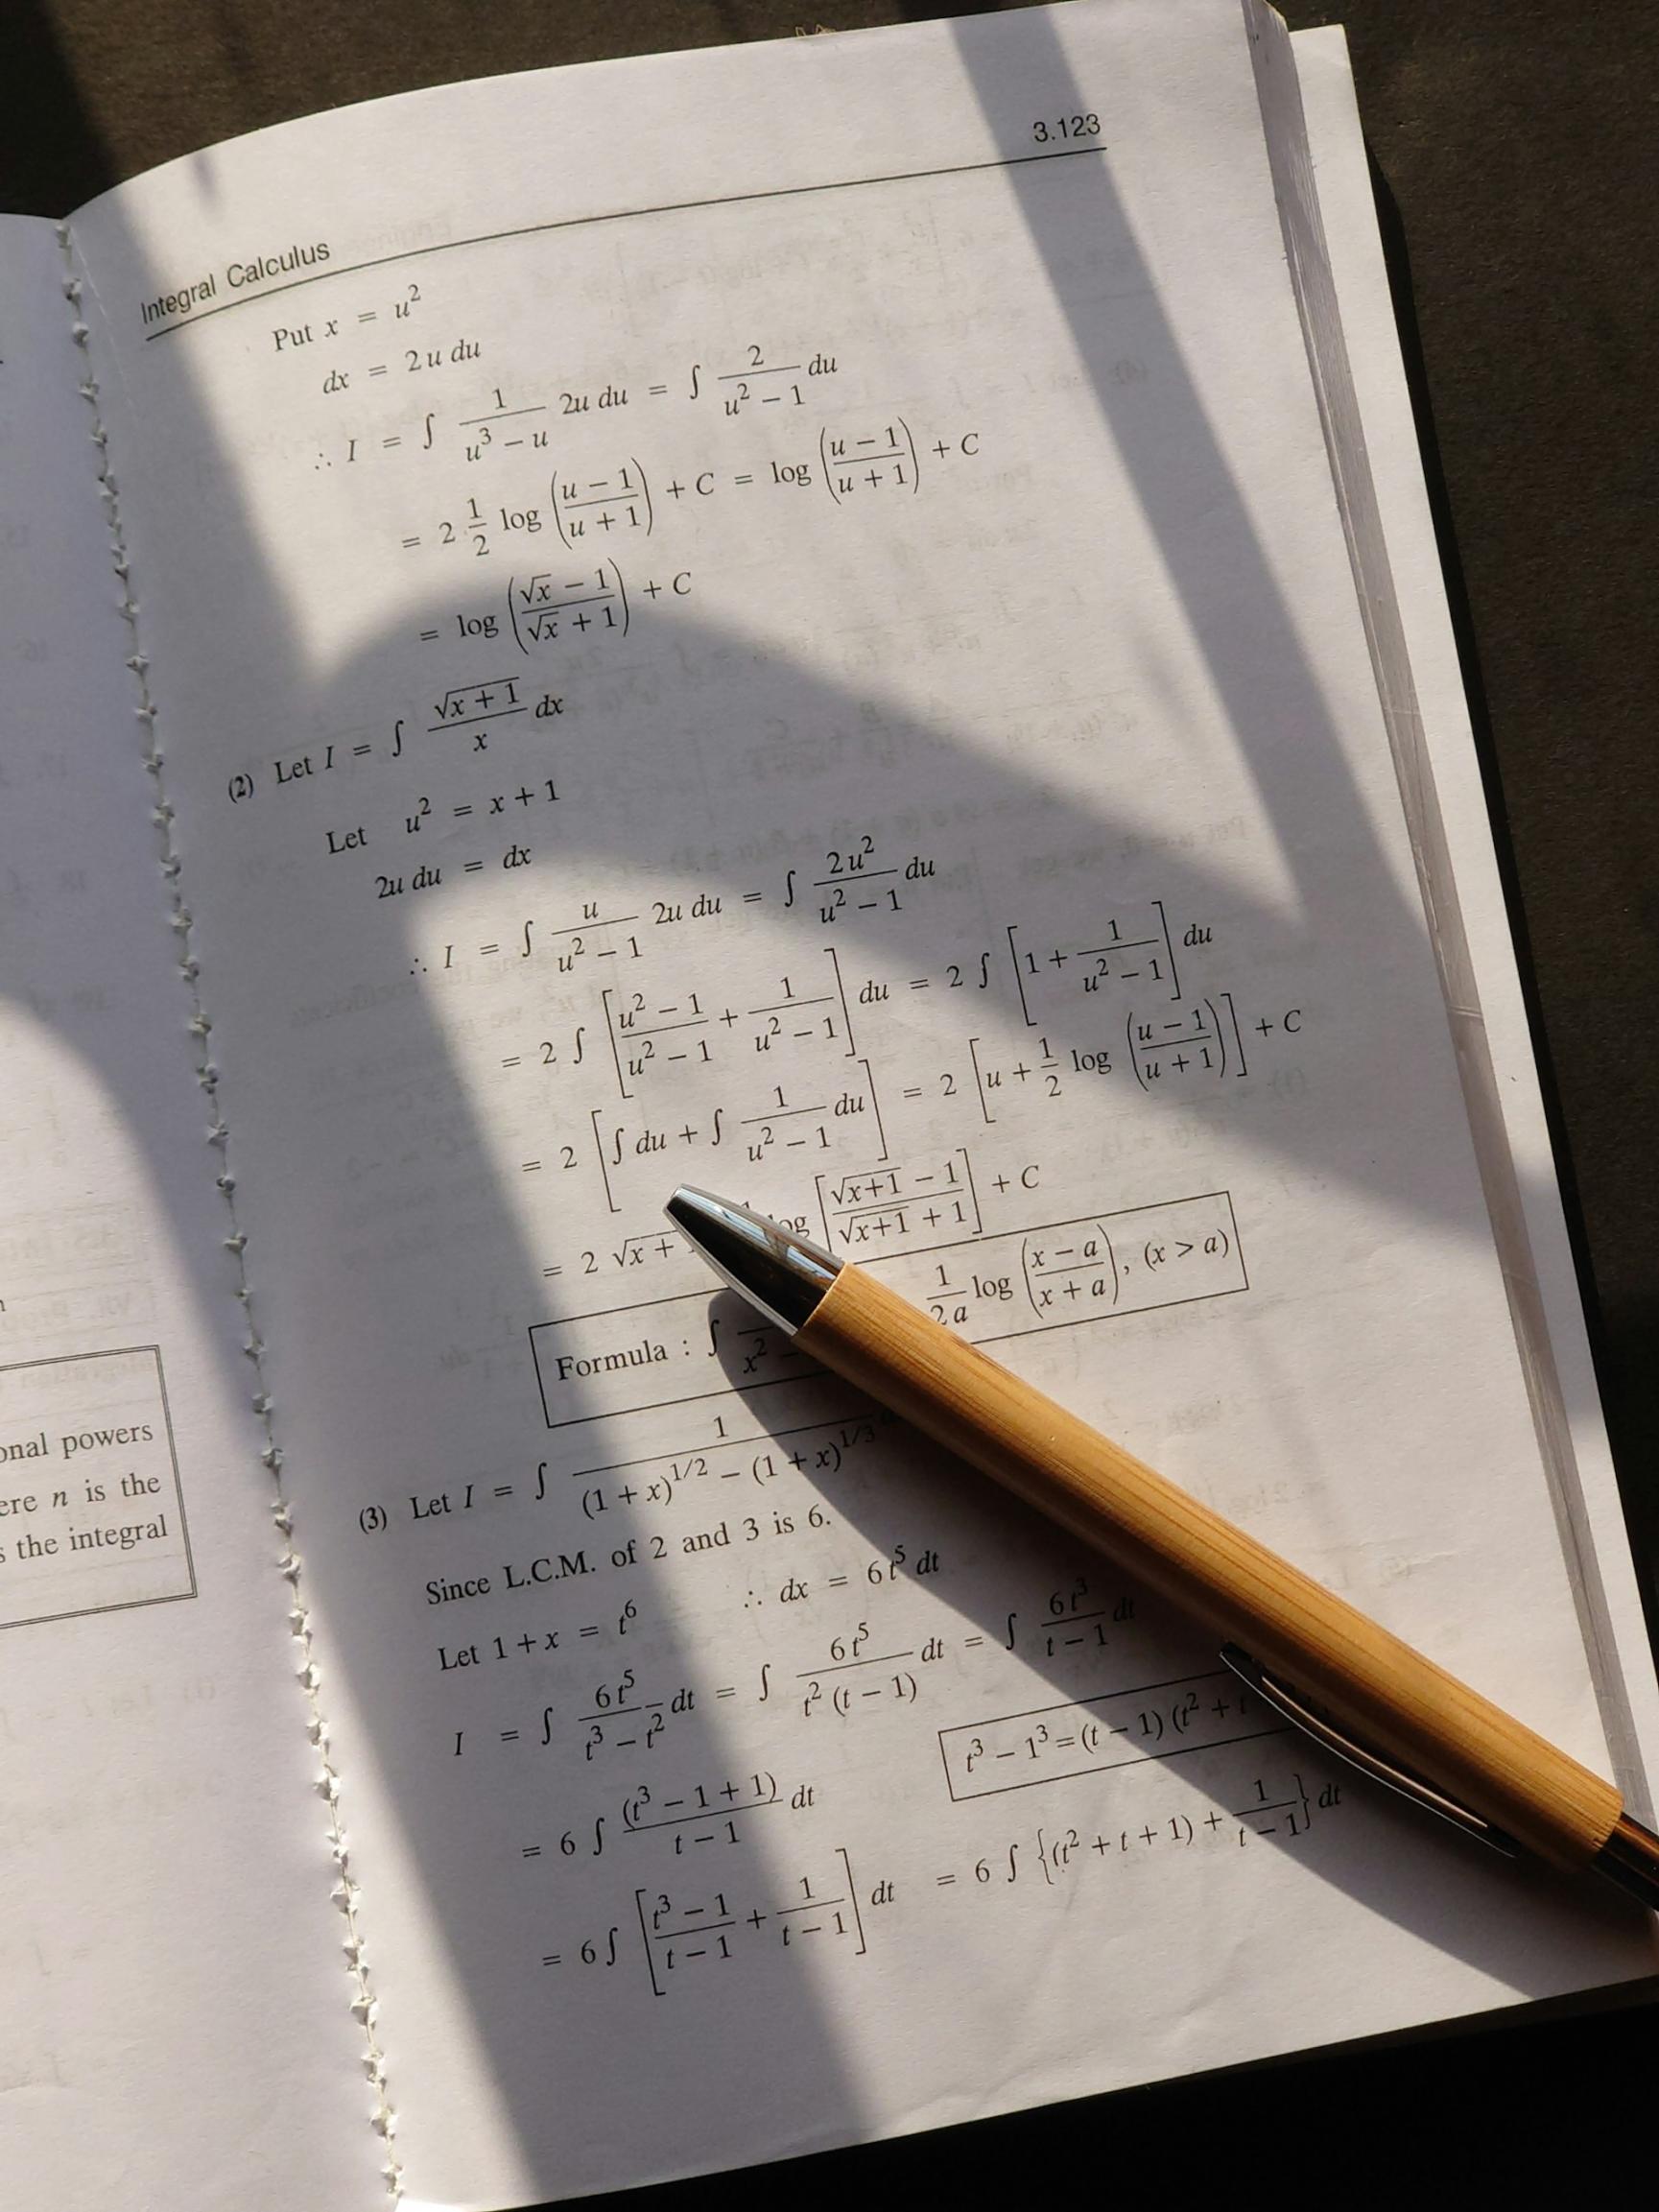 3.123
Integral Calculus
Put x = u²
dx = 2 u du
∴ I = ∫ 1/(u³ − u) 2u du = ∫ 2/(u² − 1) du
= 2 1/2 log ((u − 1)/(u + 1)) + C = log ((u − 1)/(u + 1)) + C
= log ((√x − 1)/(√x + 1)) + C
(2) Let I = ∫ √(x + 1)/x dx
Let u² = x + 1
2u du = dx
∴ I = ∫ u/(u² − 1) 2u du = ∫ 2u²/(u² − 1) du
= 2 ∫ [(u² − 1)/(u² − 1) + 1/(u² − 1)] du = 2 ∫ [1 + 1/(u² − 1)] du
= 2 [∫ du + ∫ 1/(u² − 1) du] = 2 [u + 1/2 log ((u − 1)/(u + 1))] + C
= 2 √x + [(√(x+1) − 1)/(√(x+1) + 1)] + C
Formula : ∫ x² 1/(2 a) log ((x − a)/(x + a)), (x > a)
(3) Let I = ∫ 1/((1 + x)^1/2 − (1 + x)^1/3)
Since L.C.M. of 2 and 3 is 6.
Let 1 + x = t⁶ ∴ dx = 6 t⁵ dt
I = ∫ 6 t⁵/(t³ − t²) dt = ∫ 6 t⁵/(t² (t − 1)) dt = ∫ 6 t³/(t − 1) dt
t³ − 1³ = (t − 1) (t² + t
= 6 ∫ (t³ − 1 + 1)/(t − 1) dt
= 6 ∫ [(t³ − 1)/(t − 1) + 1/(t − 1)] dt = 6 ∫ {(t² + t + 1) + 1/(t − 1)} dt
powers
n is the
the integral